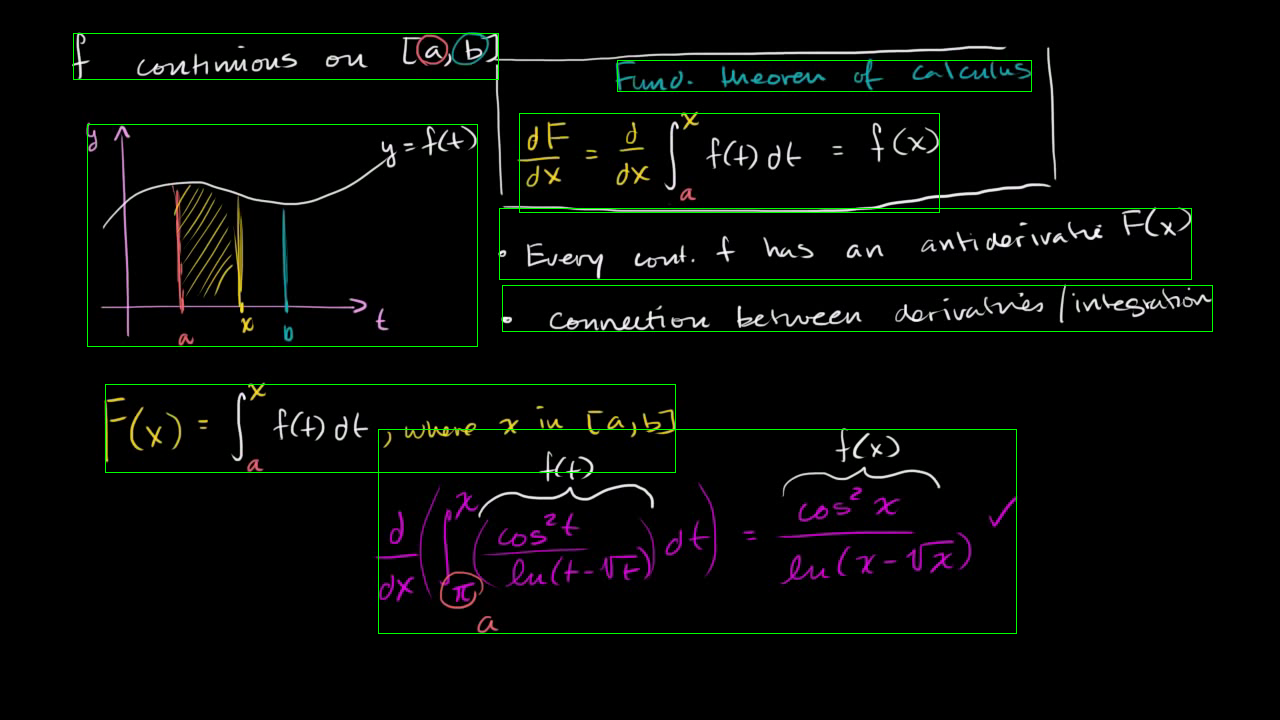 f continuous on [a, b]
Fund. theorem of calculus
dF/dx = d/dx ∫_a^x f(t) dt = f(x)
y
y = f(t)
a
x
b
t
• Every cont. f has an antiderivative F(x)
• Connection between derivatives / integration
F(x) = ∫_a^x f(t) dt, where x in [a, b]
f(t)
f(x)
d/dx (∫_π^x (cos²t / ln(t-√t)) dt) = cos²x / ln(x-√x) ✓
a